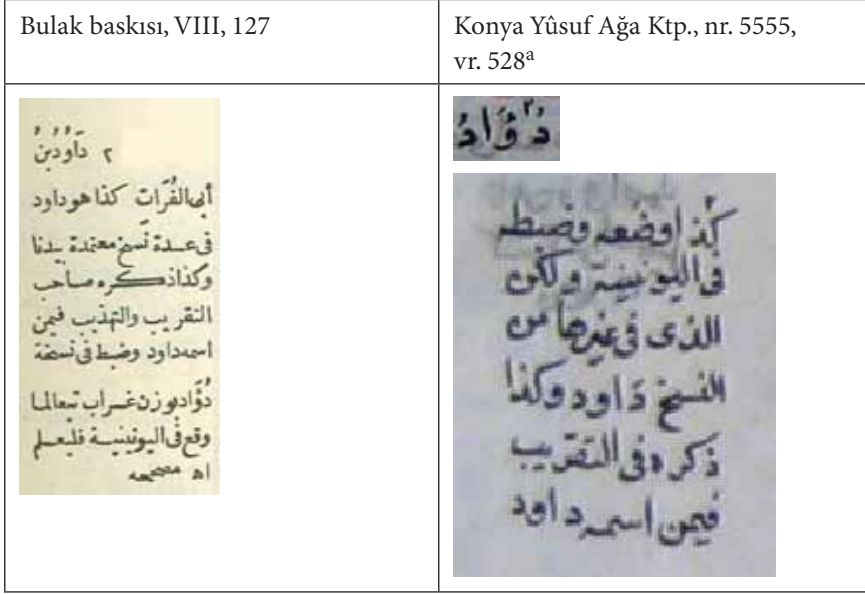 Bulak baskısı, VIII, 127
Konya Yûsuf Ağa Ktp., nr. 5555,
vr. 528ᵃ
٢ دَاوُدُ بْنُ
أبي الفُرَات كذا هو داود
في عدة نسخ معتمدة بيدنا
وكذا ذكره صاحب
التقريب والتهذيب فيمن
اسمه داود وضبط في نسخة
دُؤَاد بوزن غراب تبعا لما
وقع في اليونينية فليعلم
اه مصححه
دُؤَادُ
كذا وضعه وضبطه
في اليونينية ولكن
الذى في غيرها من
النسخ داود وكذا
ذكره في التقريب
فيمن اسمه داود